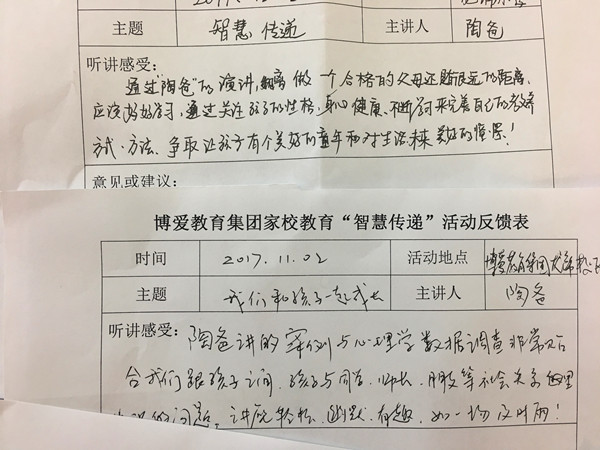 主题 智慧传递 主讲人 陶爸
听讲感受:
通过“陶爸”的演讲,离做一个合格的父母还有很远的距离,
应该好好学习,通过关注孩子的性格,身心健康,不断学习来完善自己的教养
方式、方法、争取让孩子有个美好的童年和对生活未来美好的憧憬!
意见或建议:
博爱教育集团家校教育“智慧传递”活动反馈表
时间 2017.11.02 活动地点 博爱教育集团
主题 我们和孩子一起成长 主讲人 陶爸
听讲感受: 陶爸讲的案例与心理学数据调查非常切
合我们跟孩子之间,孩子与同学、师长、朋友等社会关系
的问题。讲座轻松、幽默、有趣,如一场及时雨!